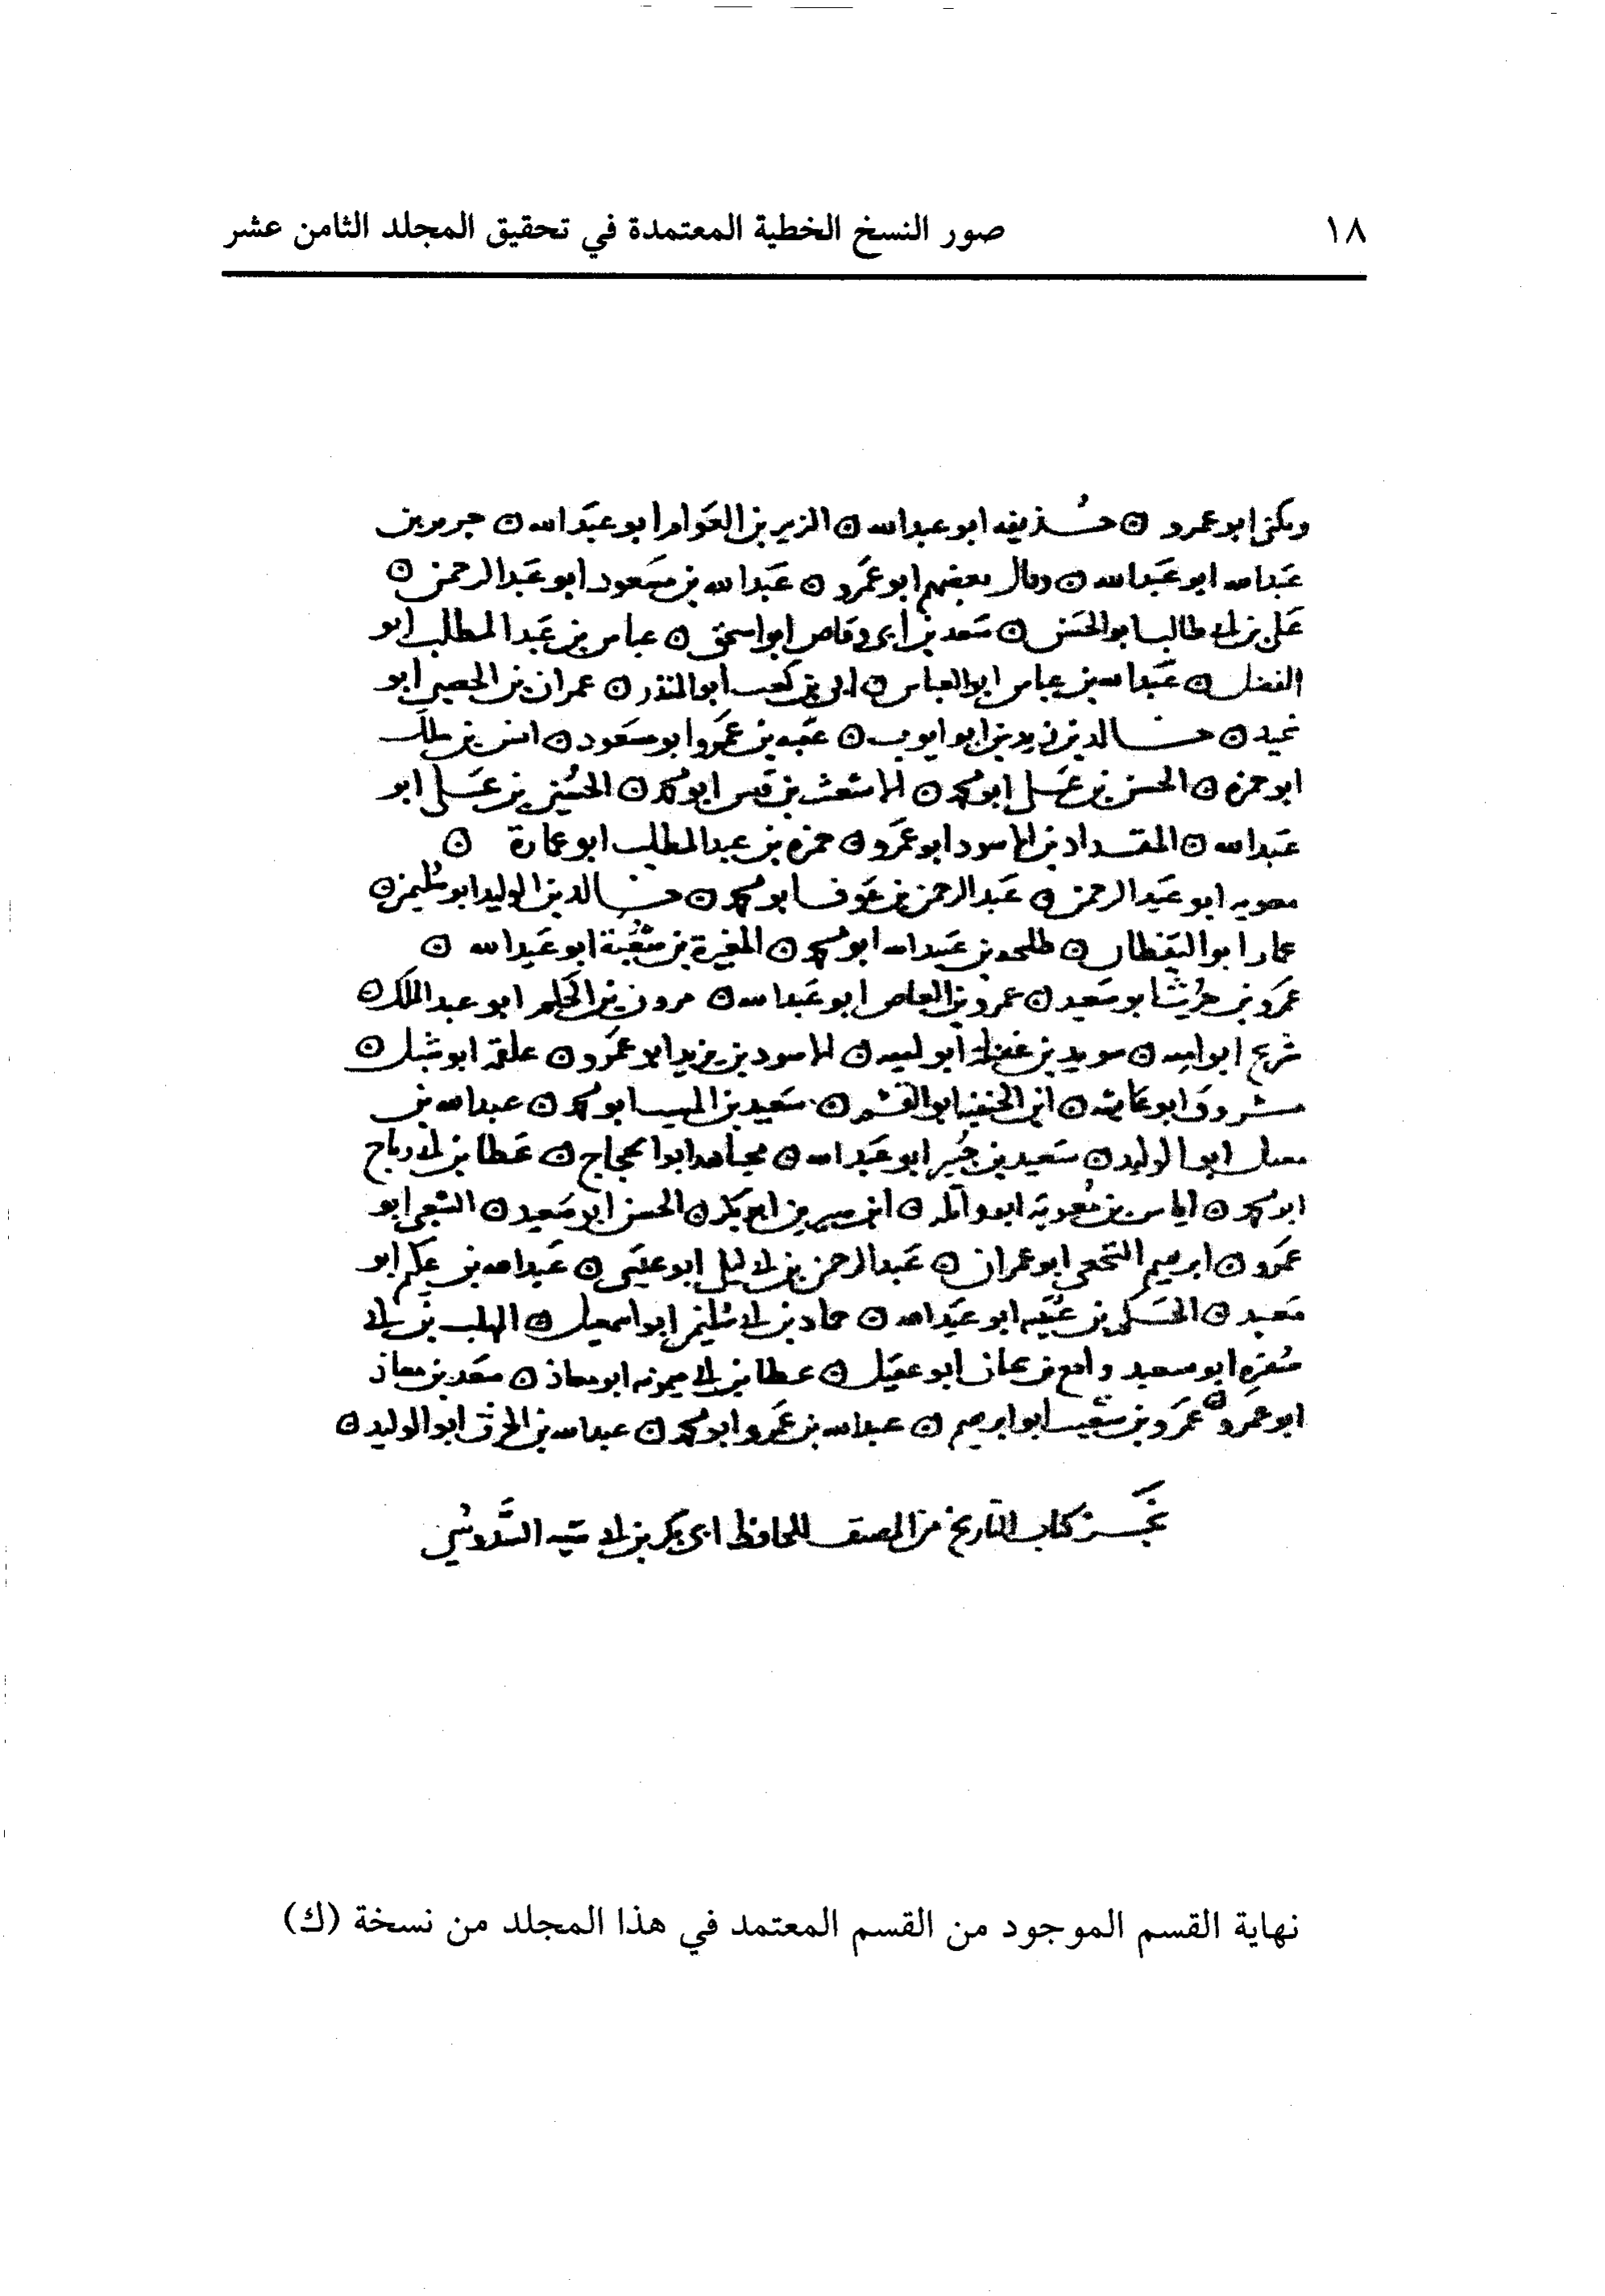 ١٨ صور النسخ الخطية المعتمدة في تحقيق المجلد الثامن عشر
ويكنى ابو عمرو ۞ حذيفه ابو عبدالله ۞ الزبير بن العوام ابو عبدالله ۞ جرير بن
عبدالله ابو عبدالله ۞ وقال بعضهم ابو عمرو ۞ عبدالله بن مسعود ابو عبدالرحمن ۞
على بن ابى طالب ابو الحسن ۞ سعد بن ابى وقاص ابو اسحق ۞ عباس بن عبد المطلب ابو
الفضل ۞ عبدالله بن عباس ابو العباس ۞ ابى بن كعب ابو المنذر ۞ عمران بن الحصين ابو
نجيد ۞ خالد بن زيد بن ابو ايوب ۞ عقبه بن عمرو ابو مسعود ۞ انس بن ملك
ابو حمزه ۞ الحسن بن على ابو محمد ۞ الاشعث بن قيس ابو محمد ۞ الحسين بن على ابو
عبدالله ۞ المقداد بن الاسود ابو عمرو ۞ حمزه بن عبد المطلب ابو عمارة ۞
معويه ابو عبد الرحمن ۞ عبد الرحمن بن عوف ابو محمد ۞ خالد بن الوليد ابو سليمن ۞
عمار ابو اليقظان ۞ طلحه بن عبيدالله ابو محمد ۞ المغيرة بن شعبة ابو عبدالله ۞
عمرو بن حريث ابو سعيد ۞ عمرو بن العاص ابو عبدالله ۞ مرون بن الحكم ابو عبد الملك ۞
شريح ابو اميه ۞ سويد بن غفله ابو اميه ۞ الاسود بن يزيد ابو عمرو ۞ علقمه ابو شبل ۞
مسروق ابو عائشه ۞ ابن الحنفيه ابو القسم ۞ سعيد بن المسيب ابو محمد ۞ عبدالله بن
معقل ابو الوليد ۞ سعيد بن جبير ابو عبدالله ۞ مجاهد ابو الحجاج ۞ عطا بن ابى رباح
ابو محمد ۞ اياس بن معوية ابو واثله ۞ ابن سيرين ابو بكر ۞ الحسن ابو سعيد ۞ الشعبى ابو
عمرو ۞ ابرهيم النخعى ابو عمران ۞ عبد الرحمن بن ابى ليلى ابو عيسى ۞ عبدالله بن عكيم ابو
معبد ۞ الحكم بن عتيبه ابو عبدالله ۞ حماد بن ابى سليمن ابو اسمعيل ۞ المهلب بن ابى
صفره ابو سعيد بن عمار ابو عقيل ۞ عطا بن ابى ميمونه ابو معاذ ۞ سعد بن معاذ
ابو عمرو ۞ عمرو بن شعيب ابو ابرهيم ۞ عبدالله بن عمرو ابو محمد ۞ عبدالله بن الحرث ابو الوليد ۞
نجز كتاب التاريخ من المصنف للحافظ ابى بكر بن ابى شيبه السدوسي
نهاية القسم الموجود من القسم المعتمد في هذا المجلد من نسخة (ك)